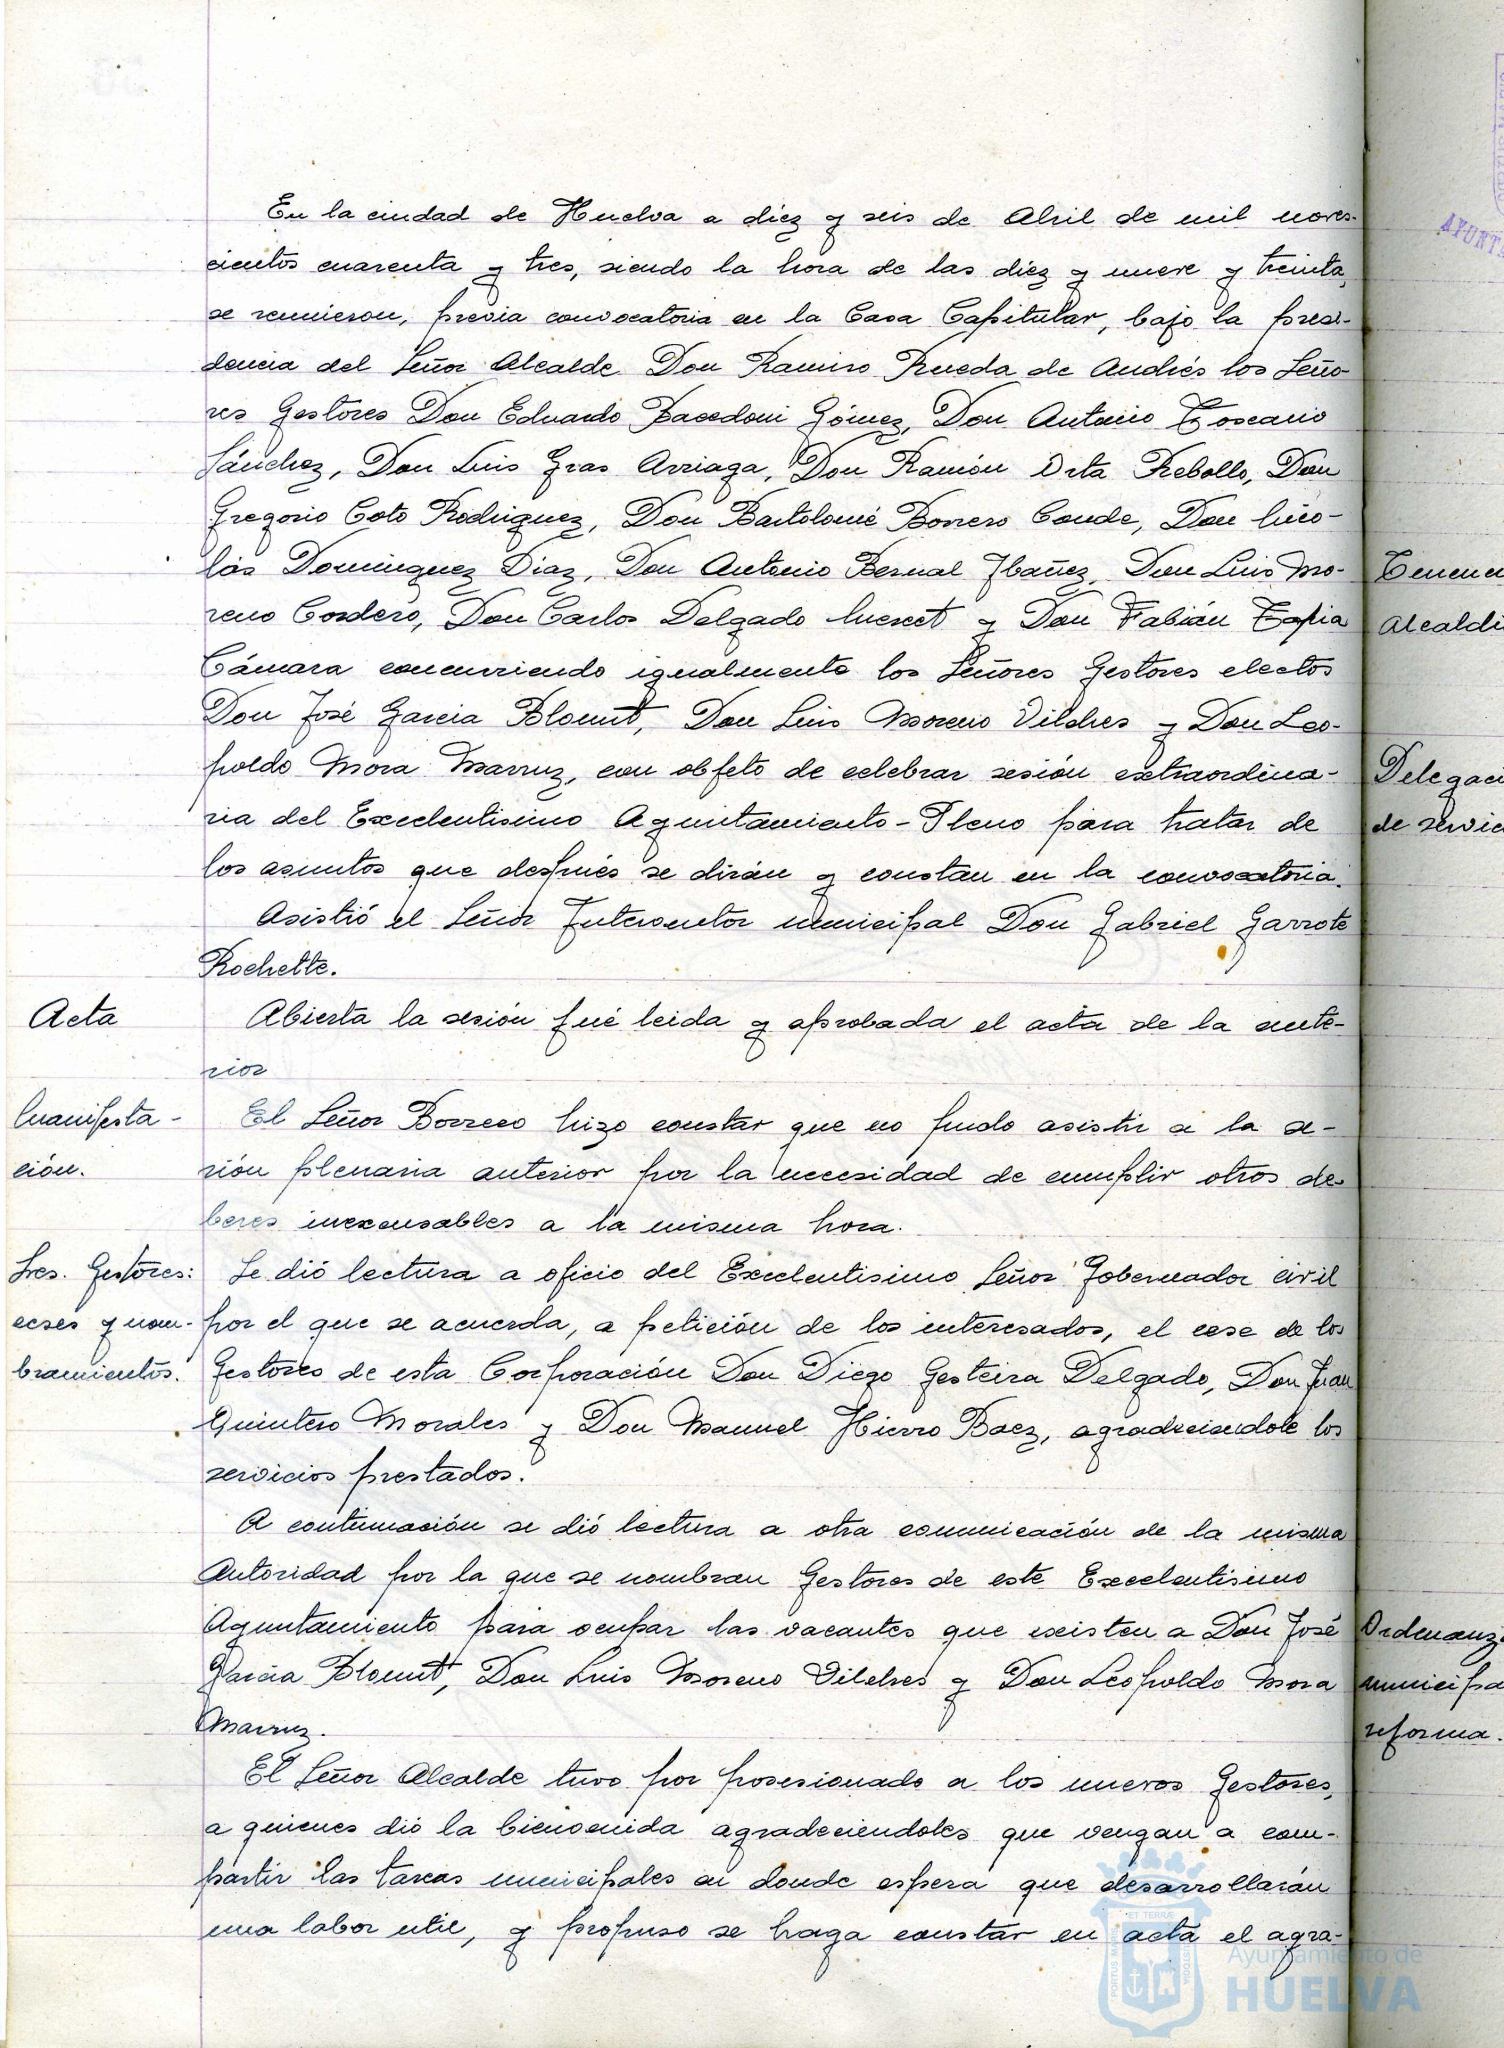 En la ciudad de Huelva a diez y seis de Abril de mil noves-
cientos cuarenta y tres, siendo la hora de las diez y nueve y treinta,
se reunieron, previa convocatoria en la Casa Capitular, bajo la presi-
dencia del Señor Alcalde Don Ramiro Rueda de Andrés los Seño-
res Gestores Don Eduardo Bacedoni Gómez, Don Antonio Toscano
Sánchez, Don Luis Gras Arriaga, Don Ramón Orta Rebollo, Don
Gregorio Coto Rodriguez, Don Bartolomé Borrero Conde, Don Nico-
lás Dominguez Diaz, Don Antonio Bernal Ibañez, Don Luis Mo-
reno Cordero, Don Carlos Delgado y Don Fabián Tapia
Cámara concurriendo igualmente los Señores Gestores electos
Don José Garcia Blount, Don Luis Moreno Vilches y Don Leo-
poldo Mora Marruz, con objeto de celebrar sesión extraordina-
ria del Excelentisimo Ayuntamiento-Pleno para tratar de
los asuntos que después se dirán y constan en la convocatoria.
Asistió el Señor Interventor municipal Don Gabriel Garrote
Rochette.
Acta
Abierta la sesión fué leida y aprobada el acta de la ante-
rior
Manifesta-
ción.
El Señor Borrero hizo constar que no pudo asistir a la se-
sión plenaria anterior por la necesidad de cumplir otros de-
beres inexcusables a la misma hora.
Sres. Gestores:
ceses y nom-
bramientos.
Se dió lectura a oficio del Excelentisimo Señor Gobernador civil
por el que se acuerda, a petición de los interesados, el cese de los
Gestores de esta Corporación Don Diego Gesteira Delgado, Don Juan
Quintero Morales y Don Manuel Hierro Baez, agradeciendole los
servicios prestados.
A continuación se dió lectura a otra comunicación de la misma
Autoridad por la que se nombran Gestores de este Excelentisimo
Ayuntamiento para ocupar las vacantes que existen a Don José
Garcia Blount, Don Luis Moreno Vilches y Don Leopoldo Mora
Marruz.
El Señor Alcalde tuvo por posesionado a los nuevos Gestores,
a quienes dió la bienvenida agradeciendoles que vengan a com-
partir las tareas municipales en donde espera que desarrollarán
una labor util, y propuso se haga constar en acta el agra-
Alcaldi
Delegaci
de servic
Ordenanz
municipa
reforma.
Ayuntamiento de
HUELVA